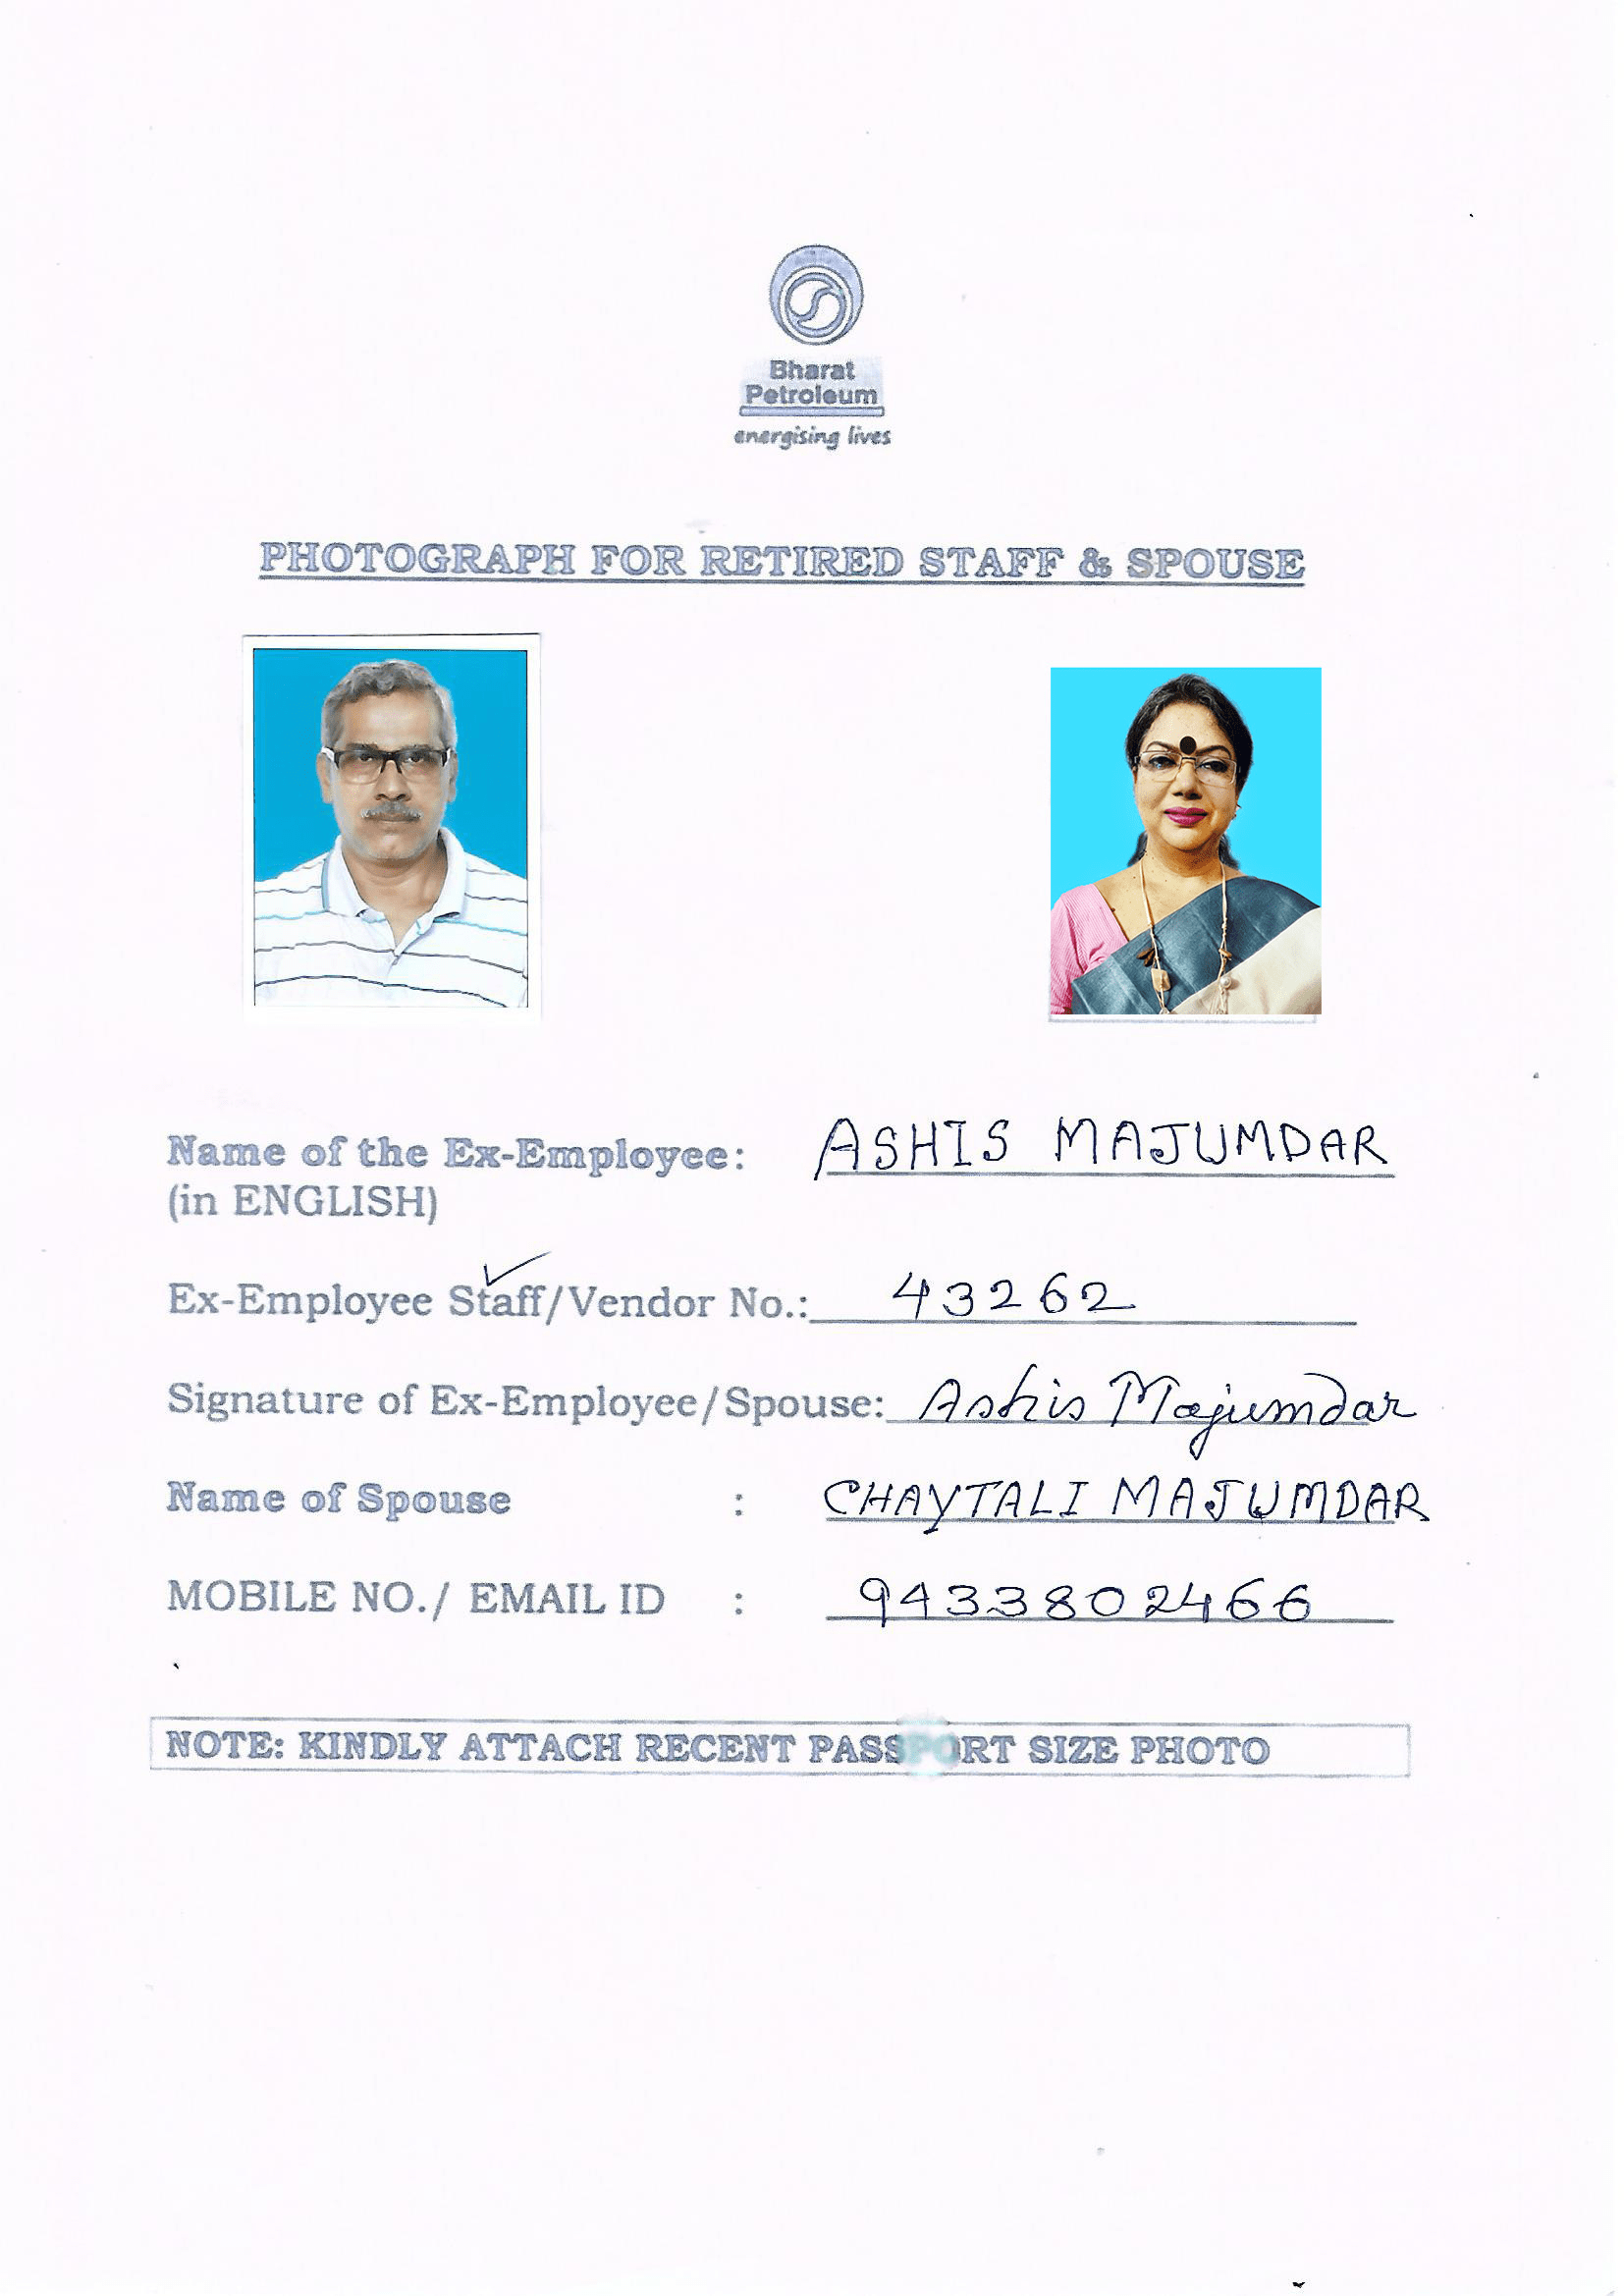 Bharat
Petroleum
energising lives
PHOTOGRAPH FOR RETIRED STAFF & SPOUSE
Name of the Ex-Employee: ASHIS MAJUMDAR
(in ENGLISH)
Ex-Employee Staff/Vendor No.: 43262
Signature of Ex-Employee/Spouse: Ashis Majumdar
Name of Spouse : CHAYTALI MAJUMDAR
MOBILE NO./ EMAIL ID : 9433802466
NOTE: KINDLY ATTACH RECENT PASSPORT SIZE PHOTO